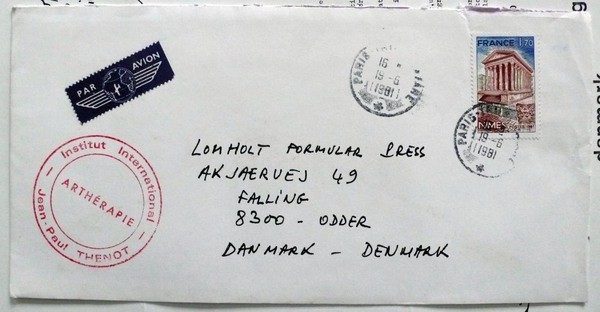 PAR AVION
FRANCE 1,70
NIMES
PARIS
16 H
19-6
1981
PARIS
19-6
1981
Institut International
Jean-Paul THENOT
ARTHÉRAPIE
LOMHOLT FORMULAR PRESS
AKJAERVEJ 49
FALLING
8300 - ODDER
DANMARK - DENMARK